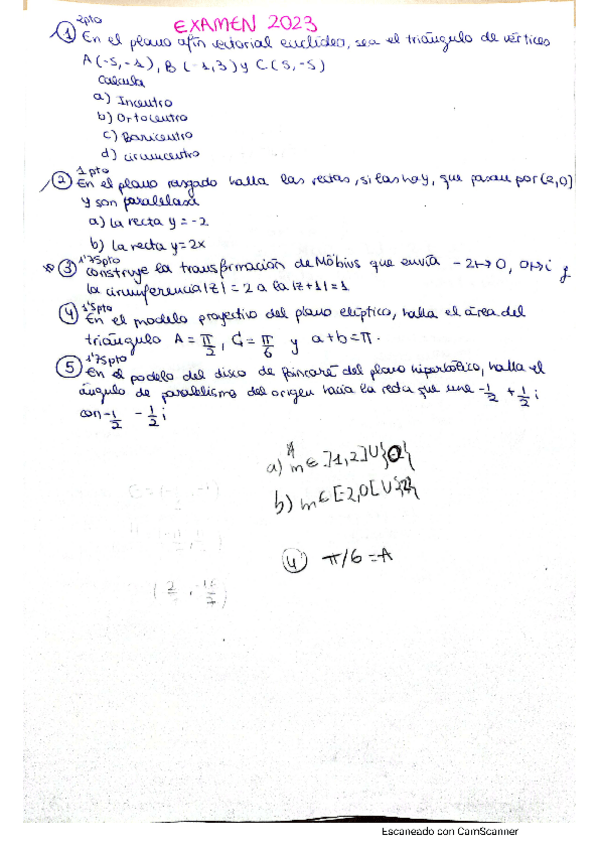 EXAMEN 2023
2pto
① En el plano afín vectorial euclideo, sea el triángulo de vértices
A (-5,-1), B (-1,3) y C (5,-5)
Calcula
a) Incentro
b) Ortocentro
c) Baricentro
d) circuncentro
1 pto
② En el plano rasgado halla las rectas, si las hay, que pasan por (2,0)
y son paralelas a
a) la recta y = -2
b) la recta y = 2x
1'75pto
③ construye la transformación de Möbius que envía -2↦0, 0↦i y
la circunferencia |z| = 2 a la |z+1| = 1
1'5pto
④ En el modelo proyectivo del plano elíptico, halla el área del
triángulo A = π/2, C = π/6 y a+b = π.
1'75pto
⑤ En el podelo del disco de Poincaré del plano hiperbólico, halla el
ángulo de paralelismo del origen hacia la recta que une -1/2 + 1/2 i
con -1/2 - 1/2 i
a) m ∈ ]1,2] ∪ {0}
b) m ∈ [-2,0[ ∪ {2}
④ π/6 = A
Escaneado con CamScanner